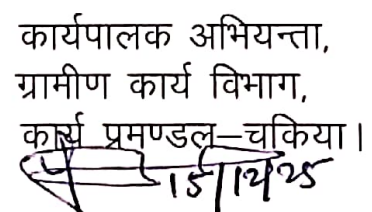 कार्यपालक अभियन्ता,
ग्रामीण कार्य विभाग,
कार्य प्रमण्डल–चकिया।
15/12/25